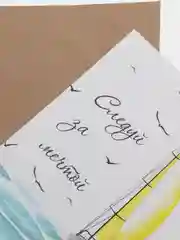 Следуй
за
мечтой